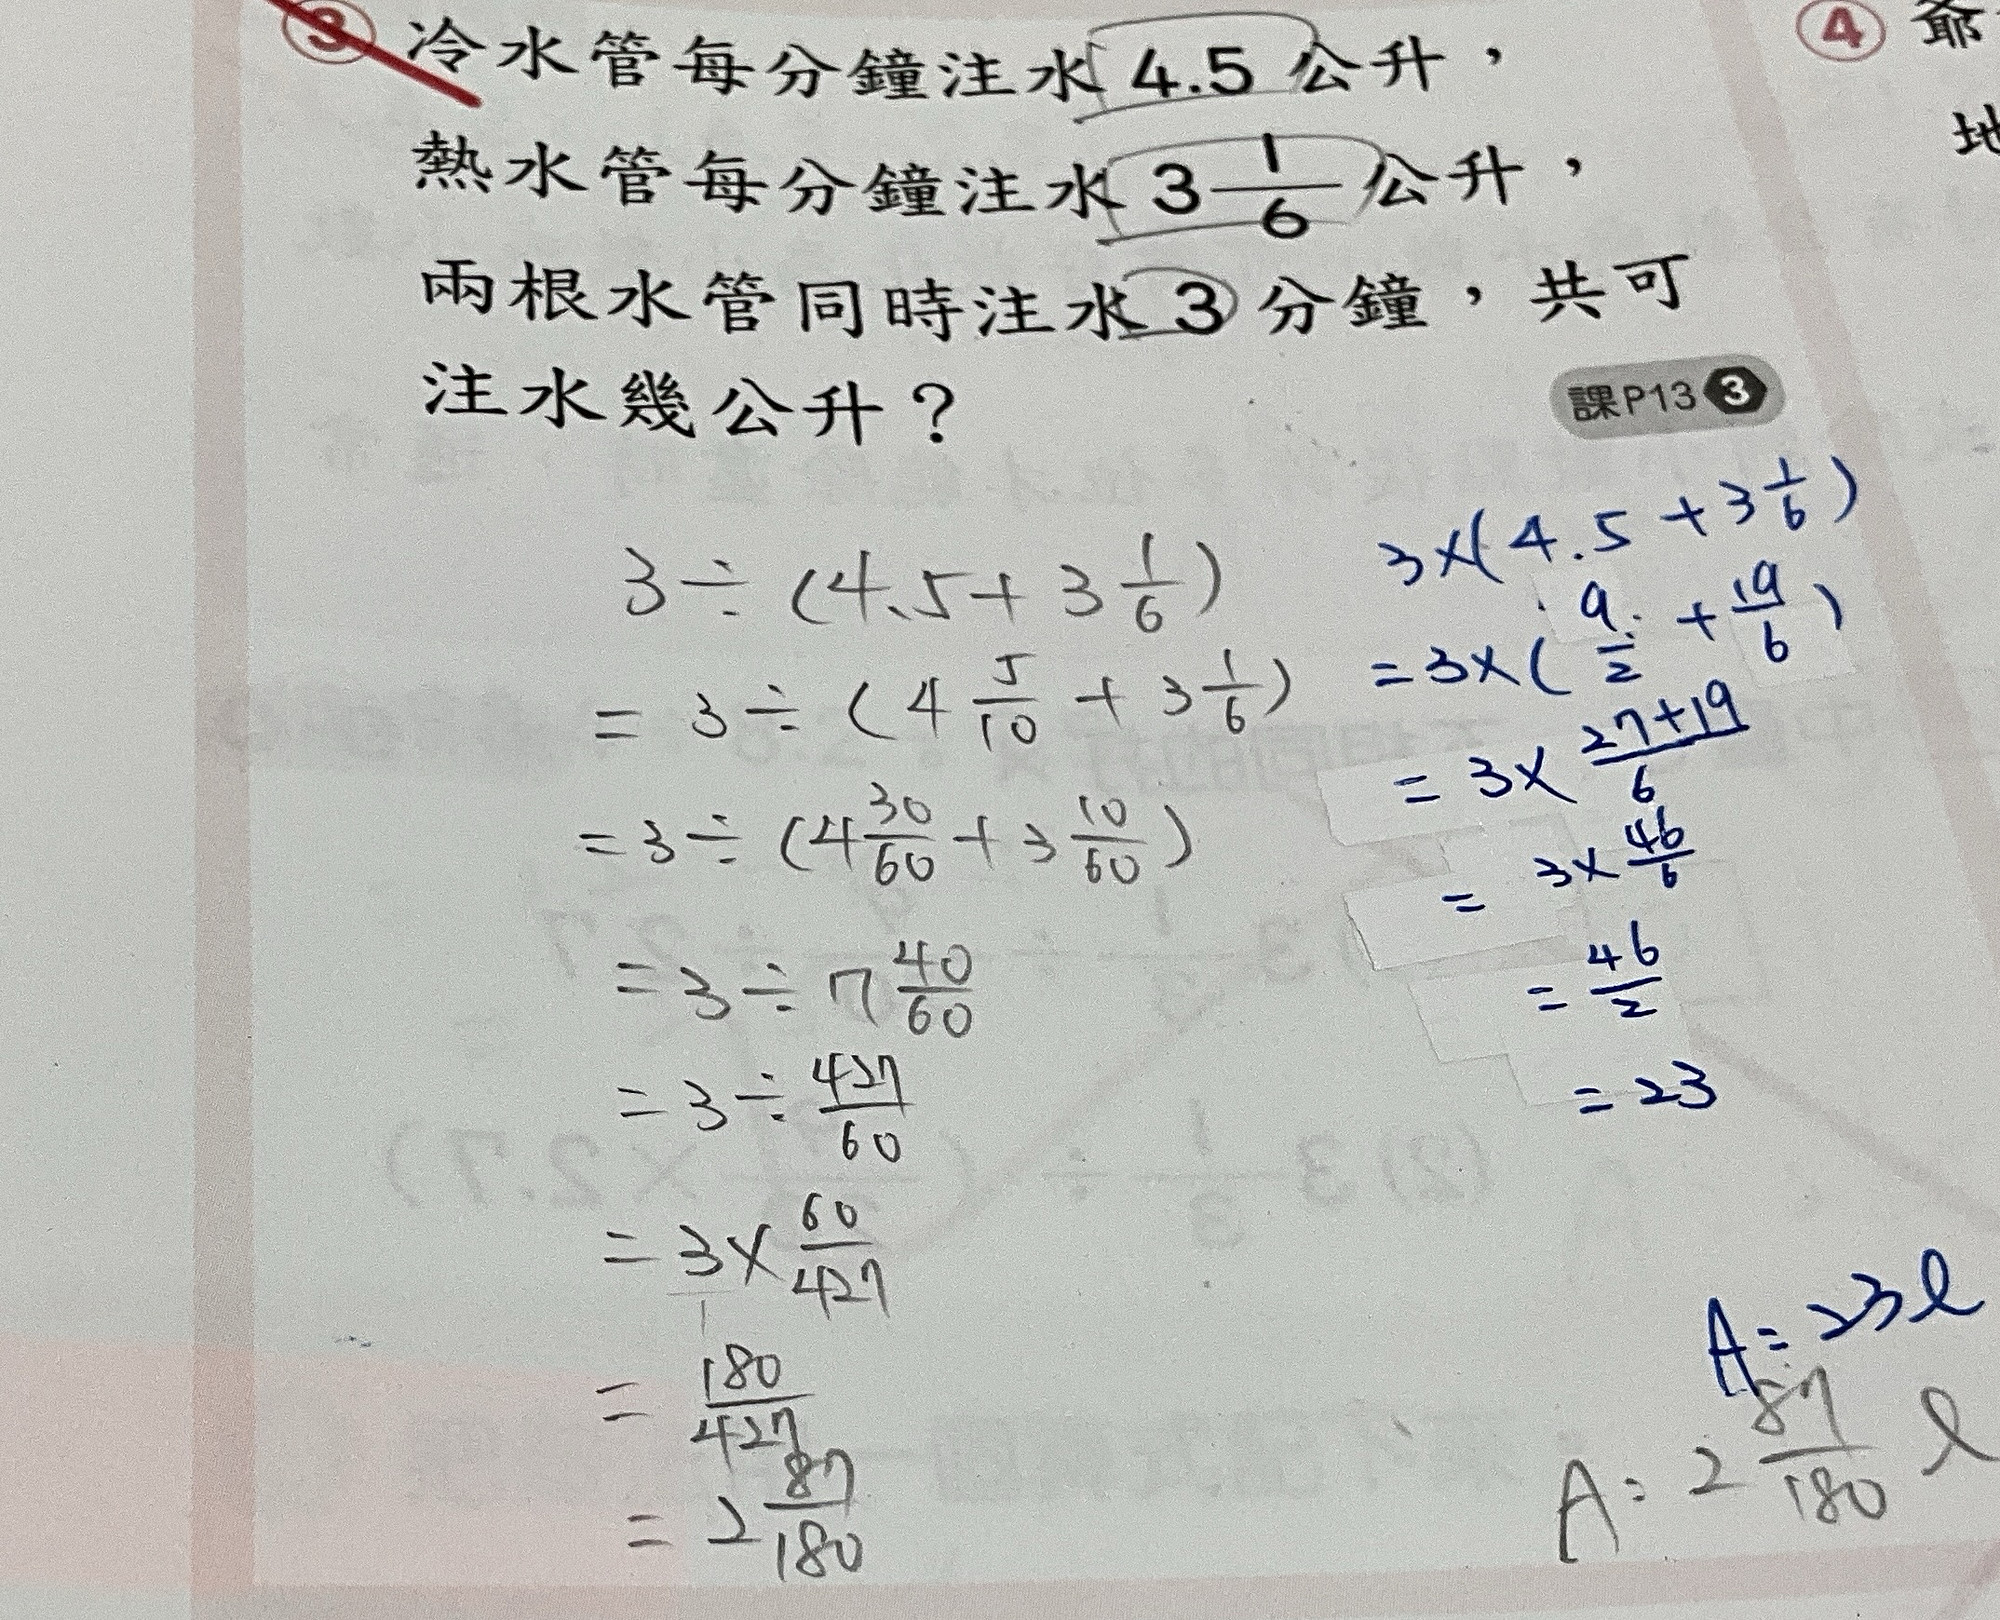 ③ 冷水管每分鐘注水 4.5 公升，
熱水管每分鐘注水 3 1/6 公升，
兩根水管同時注水 3 分鐘，共可
注水幾公升？
課P13 ❸
3÷(4.5+3 1/6)
=3÷(4 5/10+3 1/6)
=3÷(4 30/60+3 10/60)
=3÷7 40/60
=3÷427/60
=3×60/427
=180/427
=2 87/180
3×(4.5+3 1/6)
=3×(9/2+19/6)
=3×(27+19)/6
=3×46/6
=46/2
=23
A=23l
A:2 87/180 l
④ 爺
地